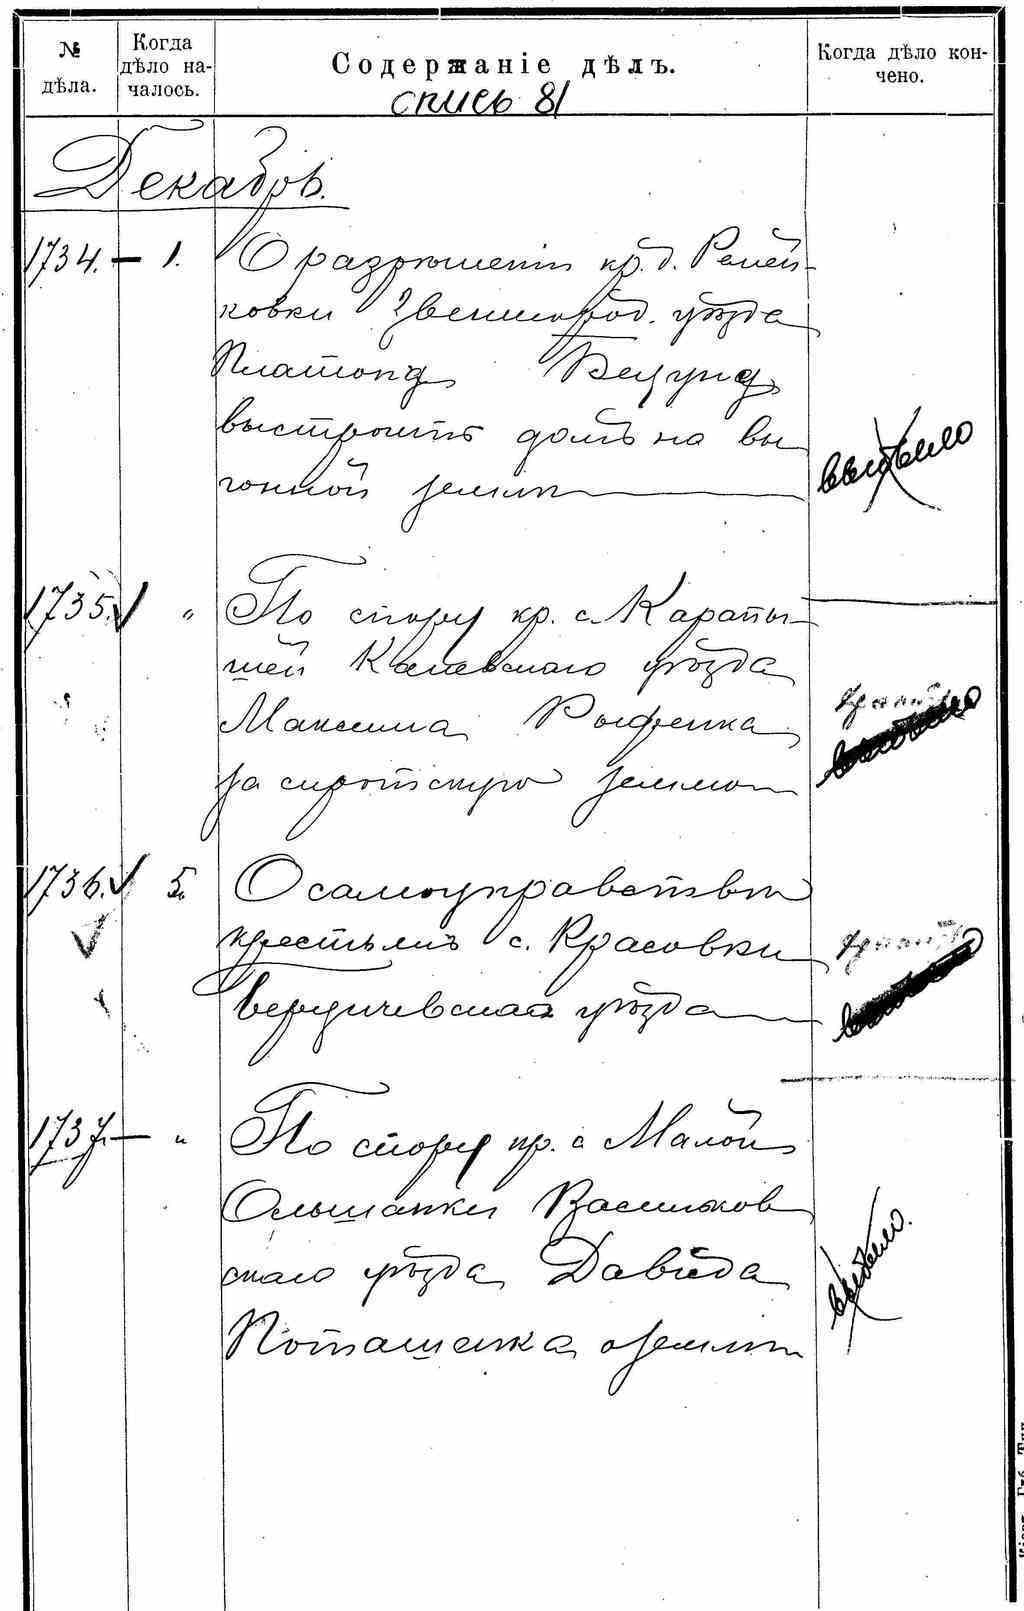 № дѣла.
Когда дѣло на-
чалось.
Содержаніе дѣлъ.
Когда дѣло кон-
чено.
опись 81
Декабрь.
1734. — 1. О разрѣшеніи кр. д. Репей-
ковки Звенигород. уѣзда
Платону
выстроить домъ на вы
гонной землѣ
выбыло
1735. " По спору кр. с. Карапы-
шей Каневскаго уѣзда
Максима
за сиротскую землю
1736. 5. О самоуправствѣ
крестьянъ с. Красовки
Бердичевскаго уѣзда
1737. — " По спору кр. с. Малой
Ольшанки Васильков
скаго уѣзда Давида
Поташенка о землѣ
выбыло.